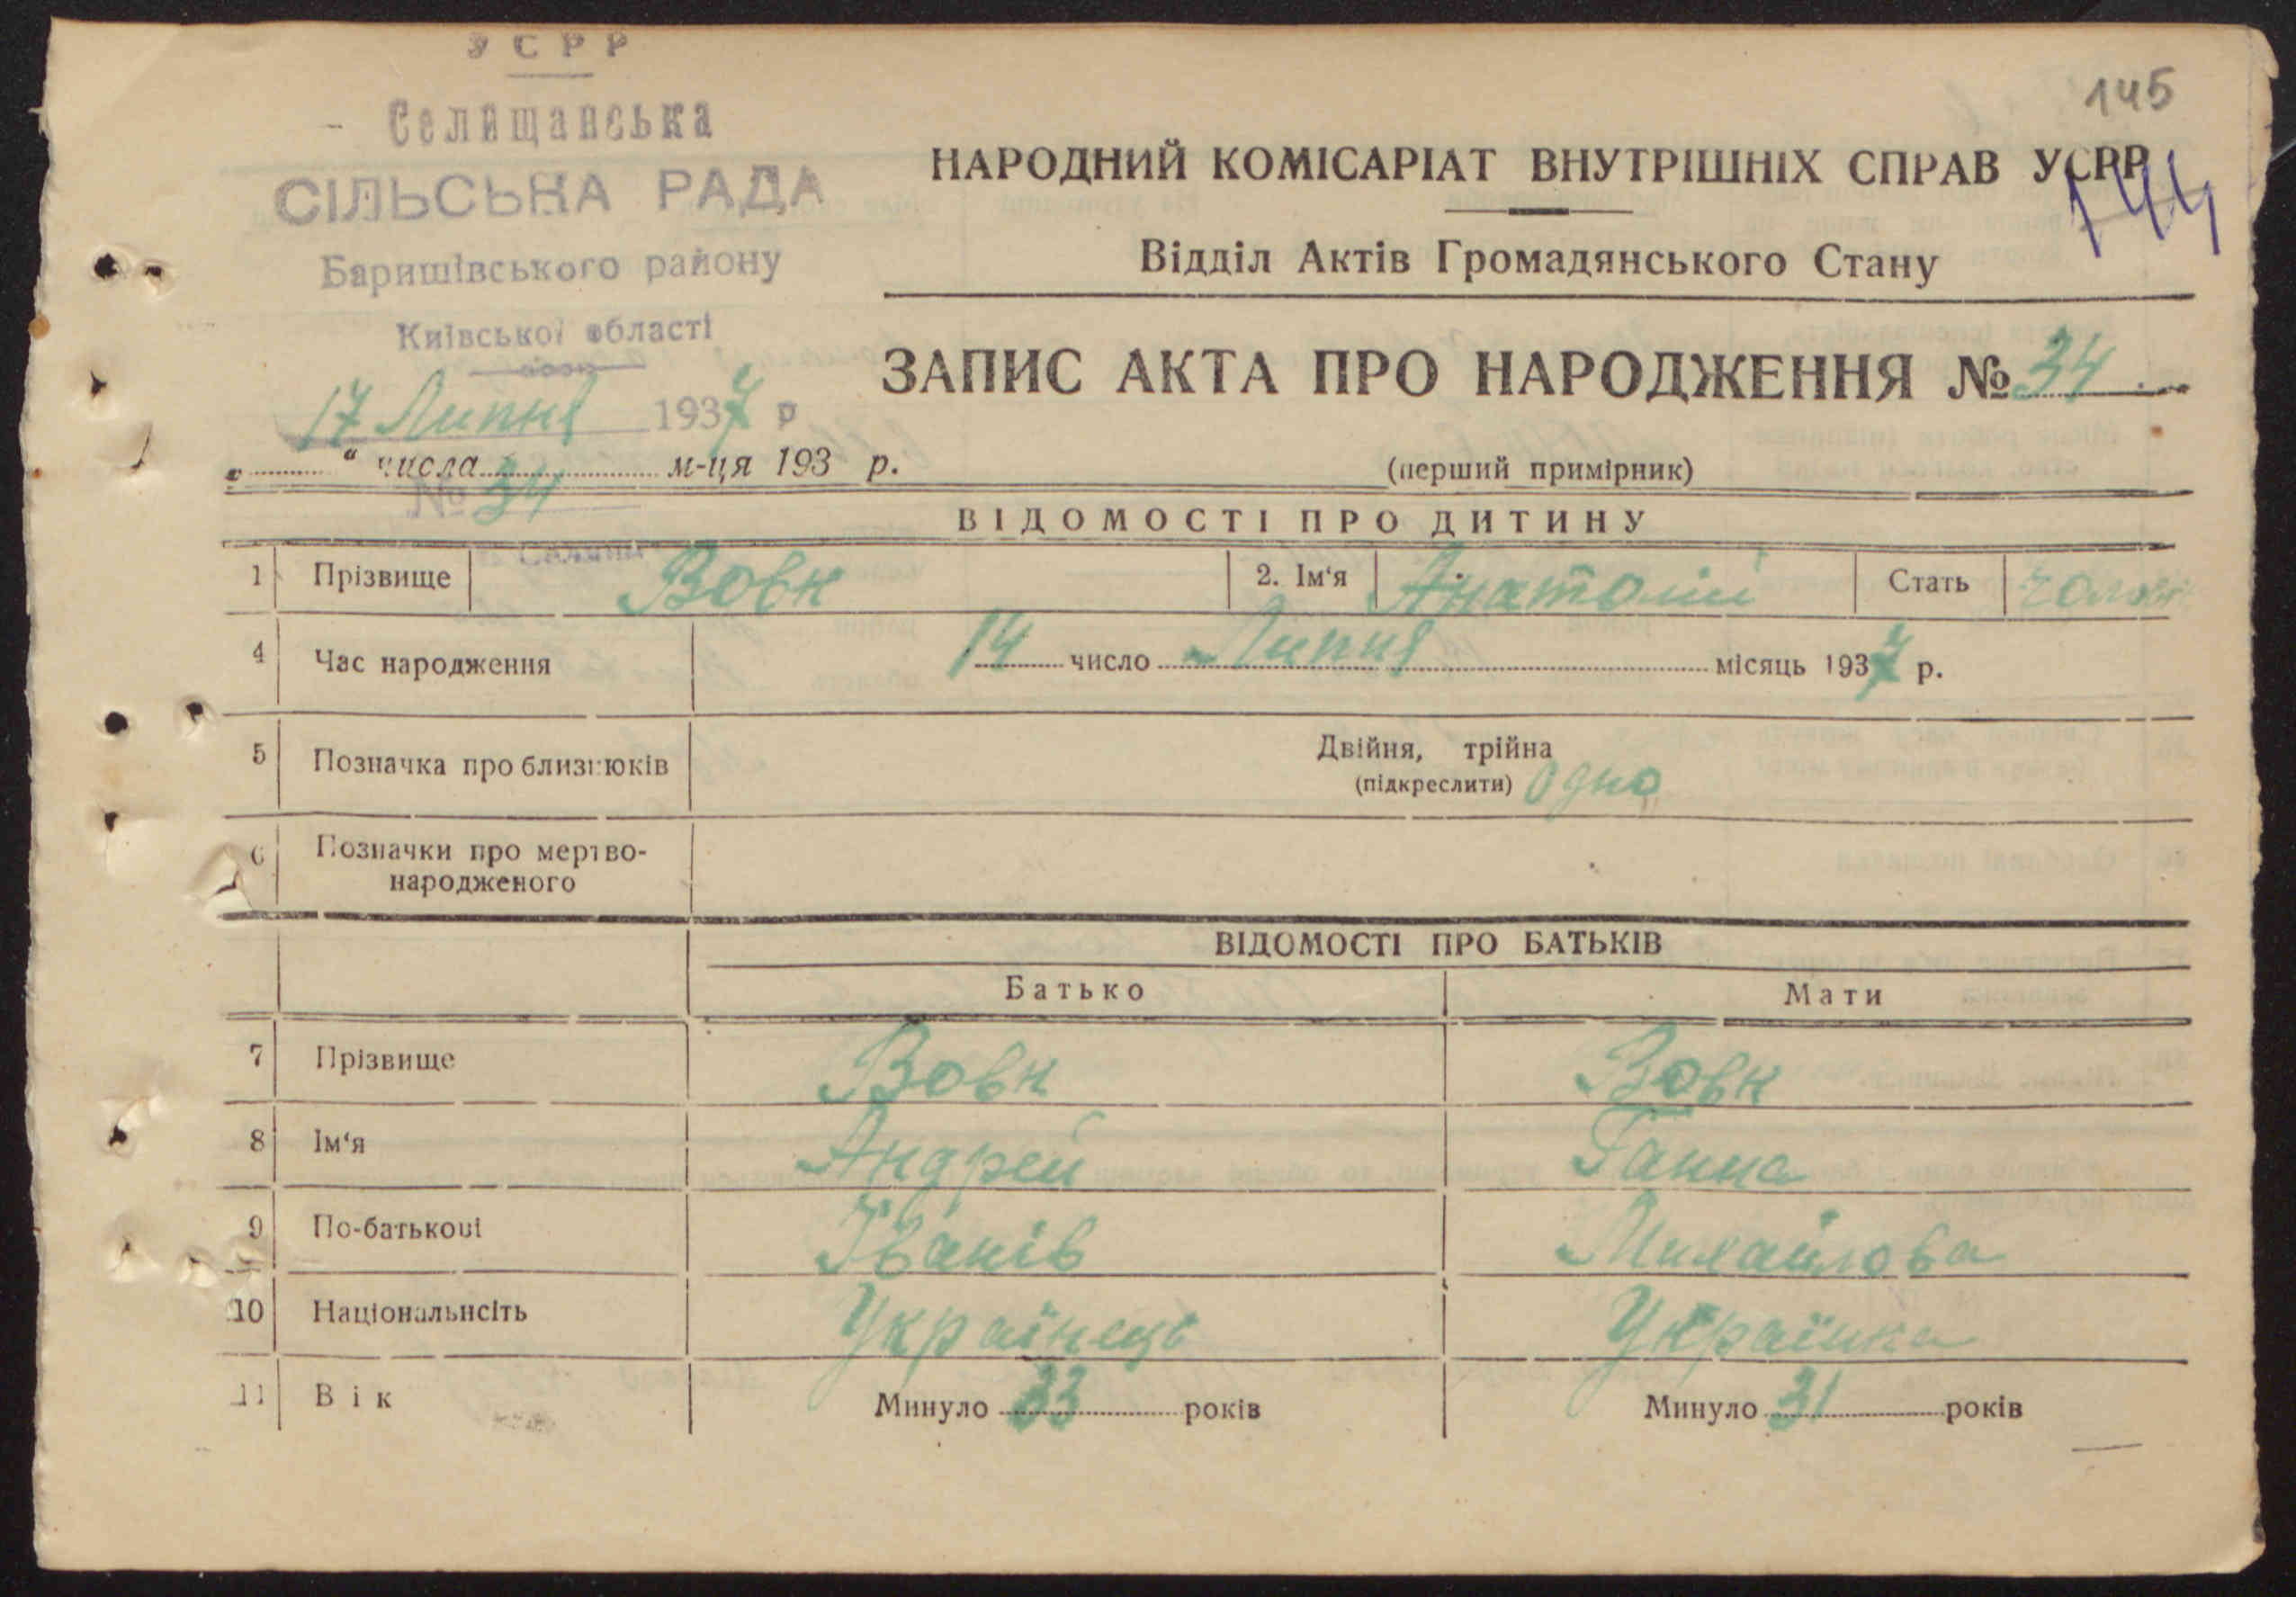 УСРР
145
Селищанська
СІЛЬСЬКА РАДА
Баришівського району
Київської області
17 Липня 1937 р
№ 34
НАРОДНИЙ КОМІСАРІАТ ВНУТРІШНІХ СПРАВ УСРР
144
Відділ Актів Громадянського Стану
ЗАПИС АКТА ПРО НАРОДЖЕННЯ № 34
„ “ числа м-ця 193 р.
(перший примірник)
ВІДОМОСТІ ПРО ДИТИНУ
1 Прізвище Вовк 2. Ім‘я Анатолій Стать
4 Час народження 14 число Липня місяць 1937 р.
5 Позначка про близнюків Двійня, трійна
(підкреслити) Одно
6 Позначки про мертво-
народженого
ВІДОМОСТІ ПРО БАТЬКІВ
Батько Мати
7 Прізвище Вовк Вовк
8 Ім‘я Андрей Ганна
9 По-батькові Іванів Михайлова
10 Національнсіть Українець Українка
11 Вік Минуло 33 років Минуло 31 років